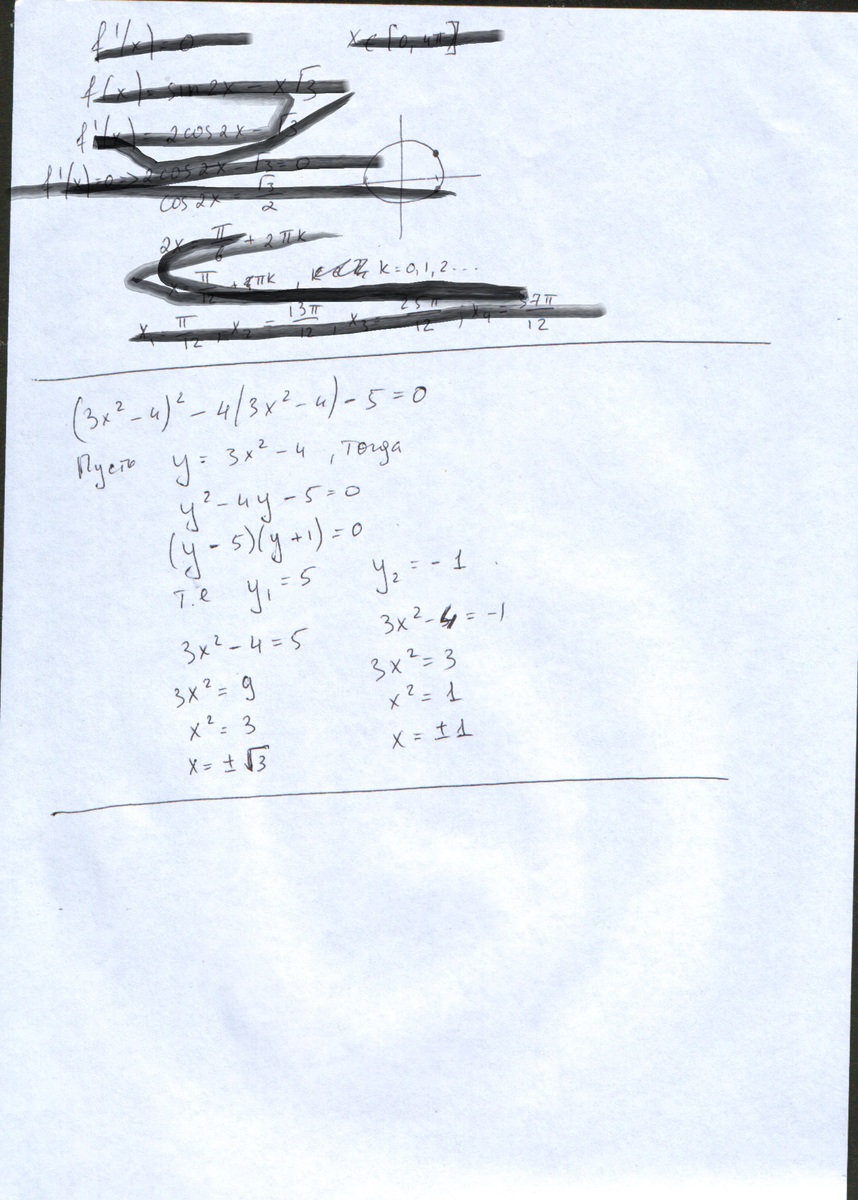 f'(x) = 0 x ∈ [0, 4π]
f(x) = sin 2x - x√3
f'(x) = 2cos 2x - √3
f'(x)=0 => 2cos 2x - √3 = 0
cos 2x = √3/2
2x = π/6 + 2πk
π/12 + πk, k=0,1,2...
x₁ = π/12, x₂ = 13π/12, x₃ = 25π/12, x₄ = 37π/12
(3x² - 4)² - 4(3x² - 4) - 5 = 0
Пусть y = 3x² - 4, тогда
y² - 4y - 5 = 0
(y - 5)(y + 1) = 0
т.е y₁ = 5 y₂ = -1
3x² - 4 = 5 3x² - 4 = -1
3x² = 9 3x² = 3
x² = 3 x² = 1
x = ±√3 x = ±1